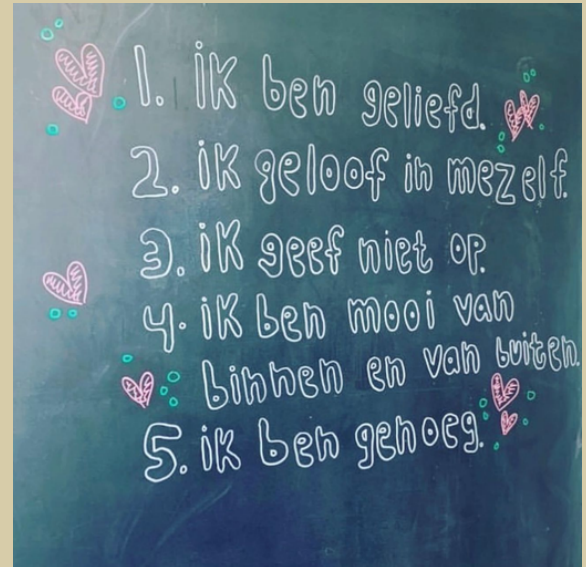 1. ik ben geliefd.
2. ik geloof in mezelf.
3. ik geef niet op.
4. ik ben mooi van
binnen en van buiten.
5. ik ben genoeg.